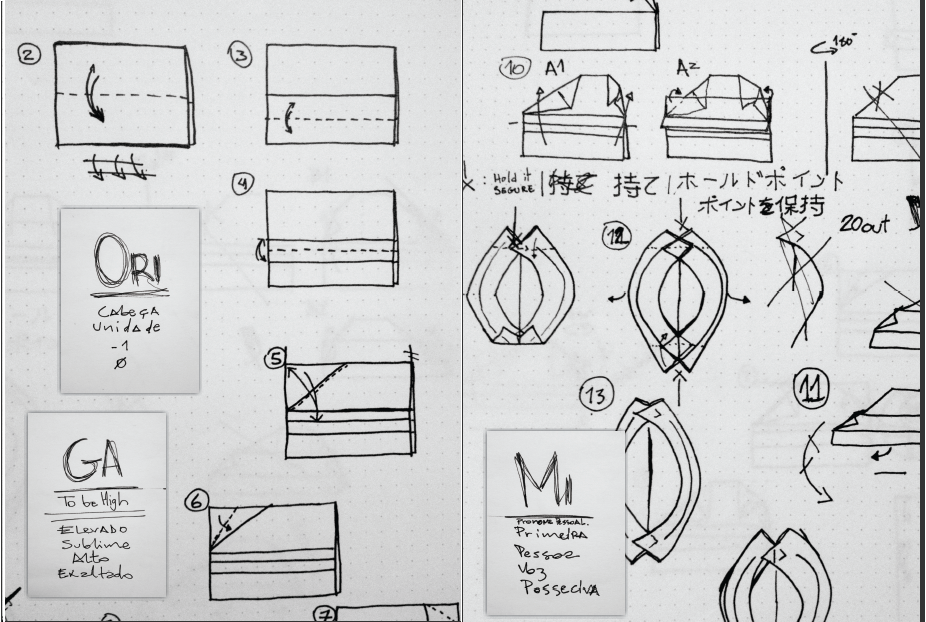 2
3
4
ORI
CABEÇA
Unidade
-1
Ø
5
GA
To be High
ELEVADO
Sublime
Alto
Exaltado
6
7
10
A1
A2
180°
: Hold it
SEGURE
持て
ホールドポイント
ポイントを保持
12
20ut
13
11
MI
PRONOME PESSOAL.
PrimeiRA
Pessoa
Voz